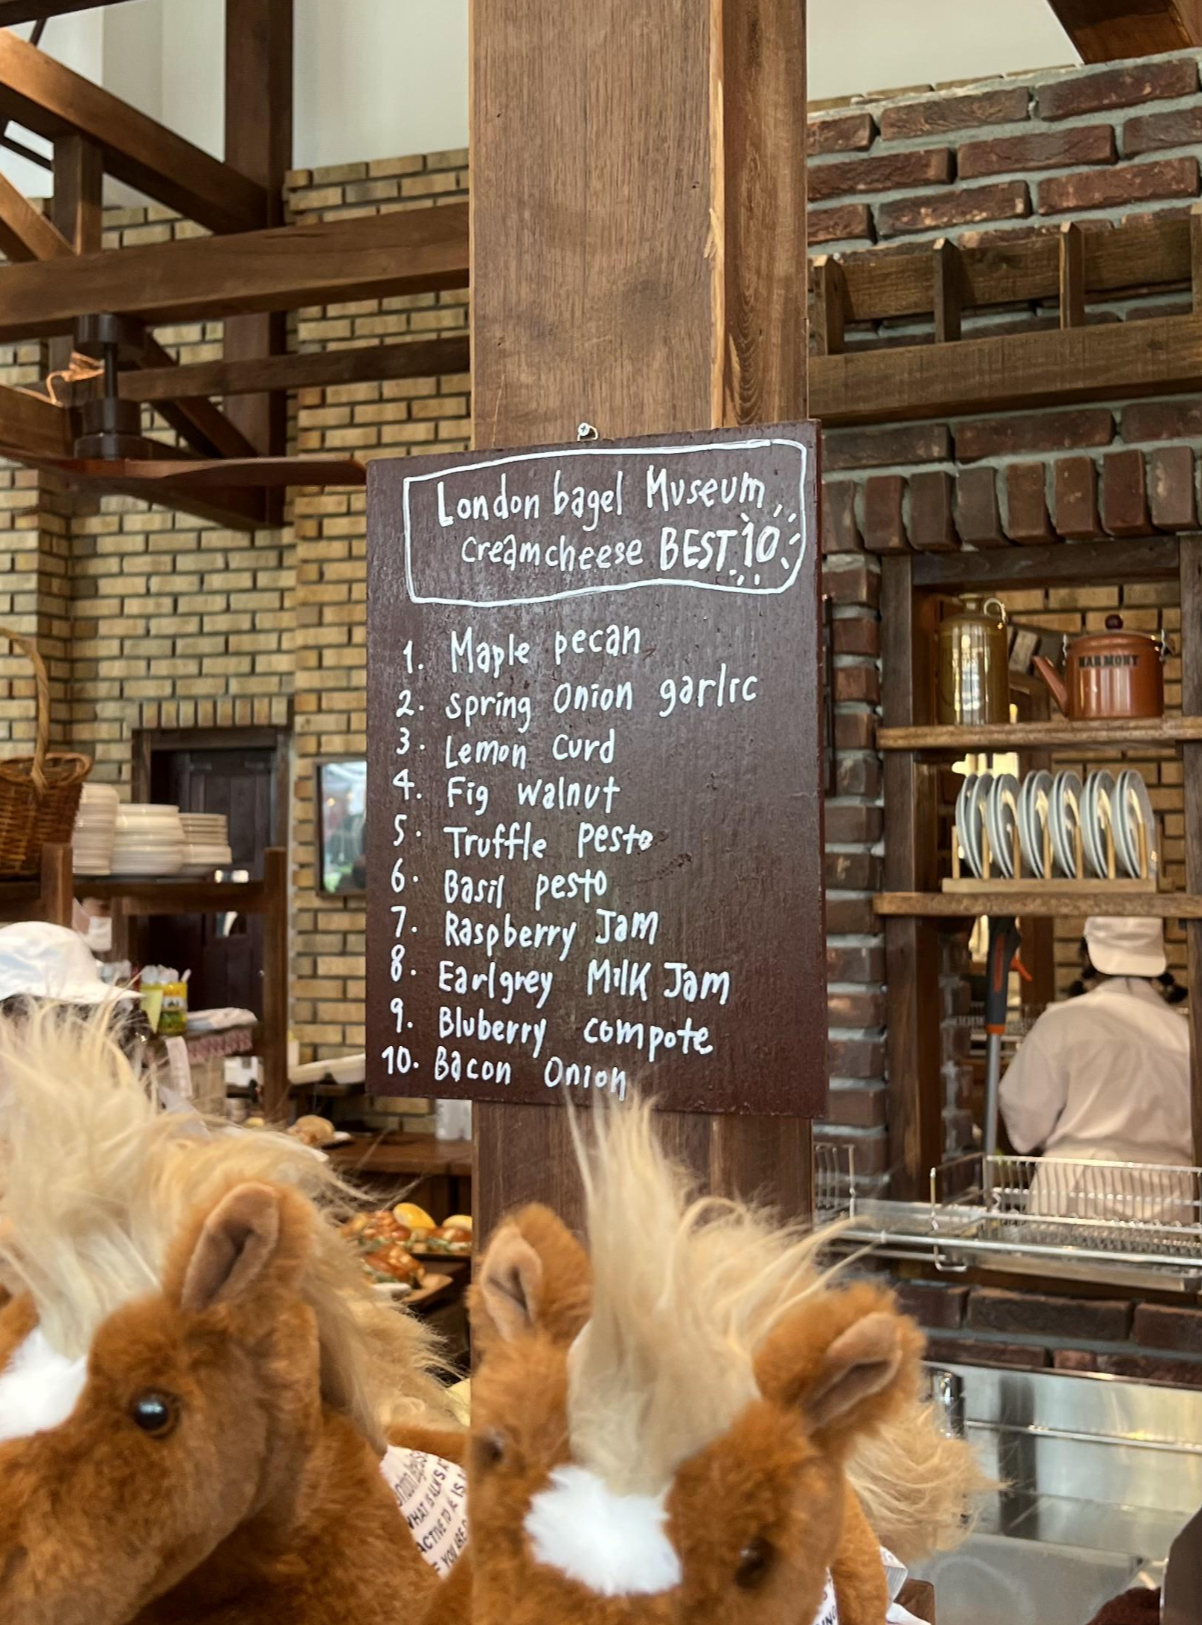 London bagel Museum
creamcheese BEST 10
1. Maple pecan
2. spring Onion garlic
3. Lemon Curd
4. Fig walnut
5. Truffle pesto
6. Basil pesto
7. Raspberry Jam
8. Earlgrey Milk Jam
9. Bluberry compote
10. Bacon Onion
HARMONY